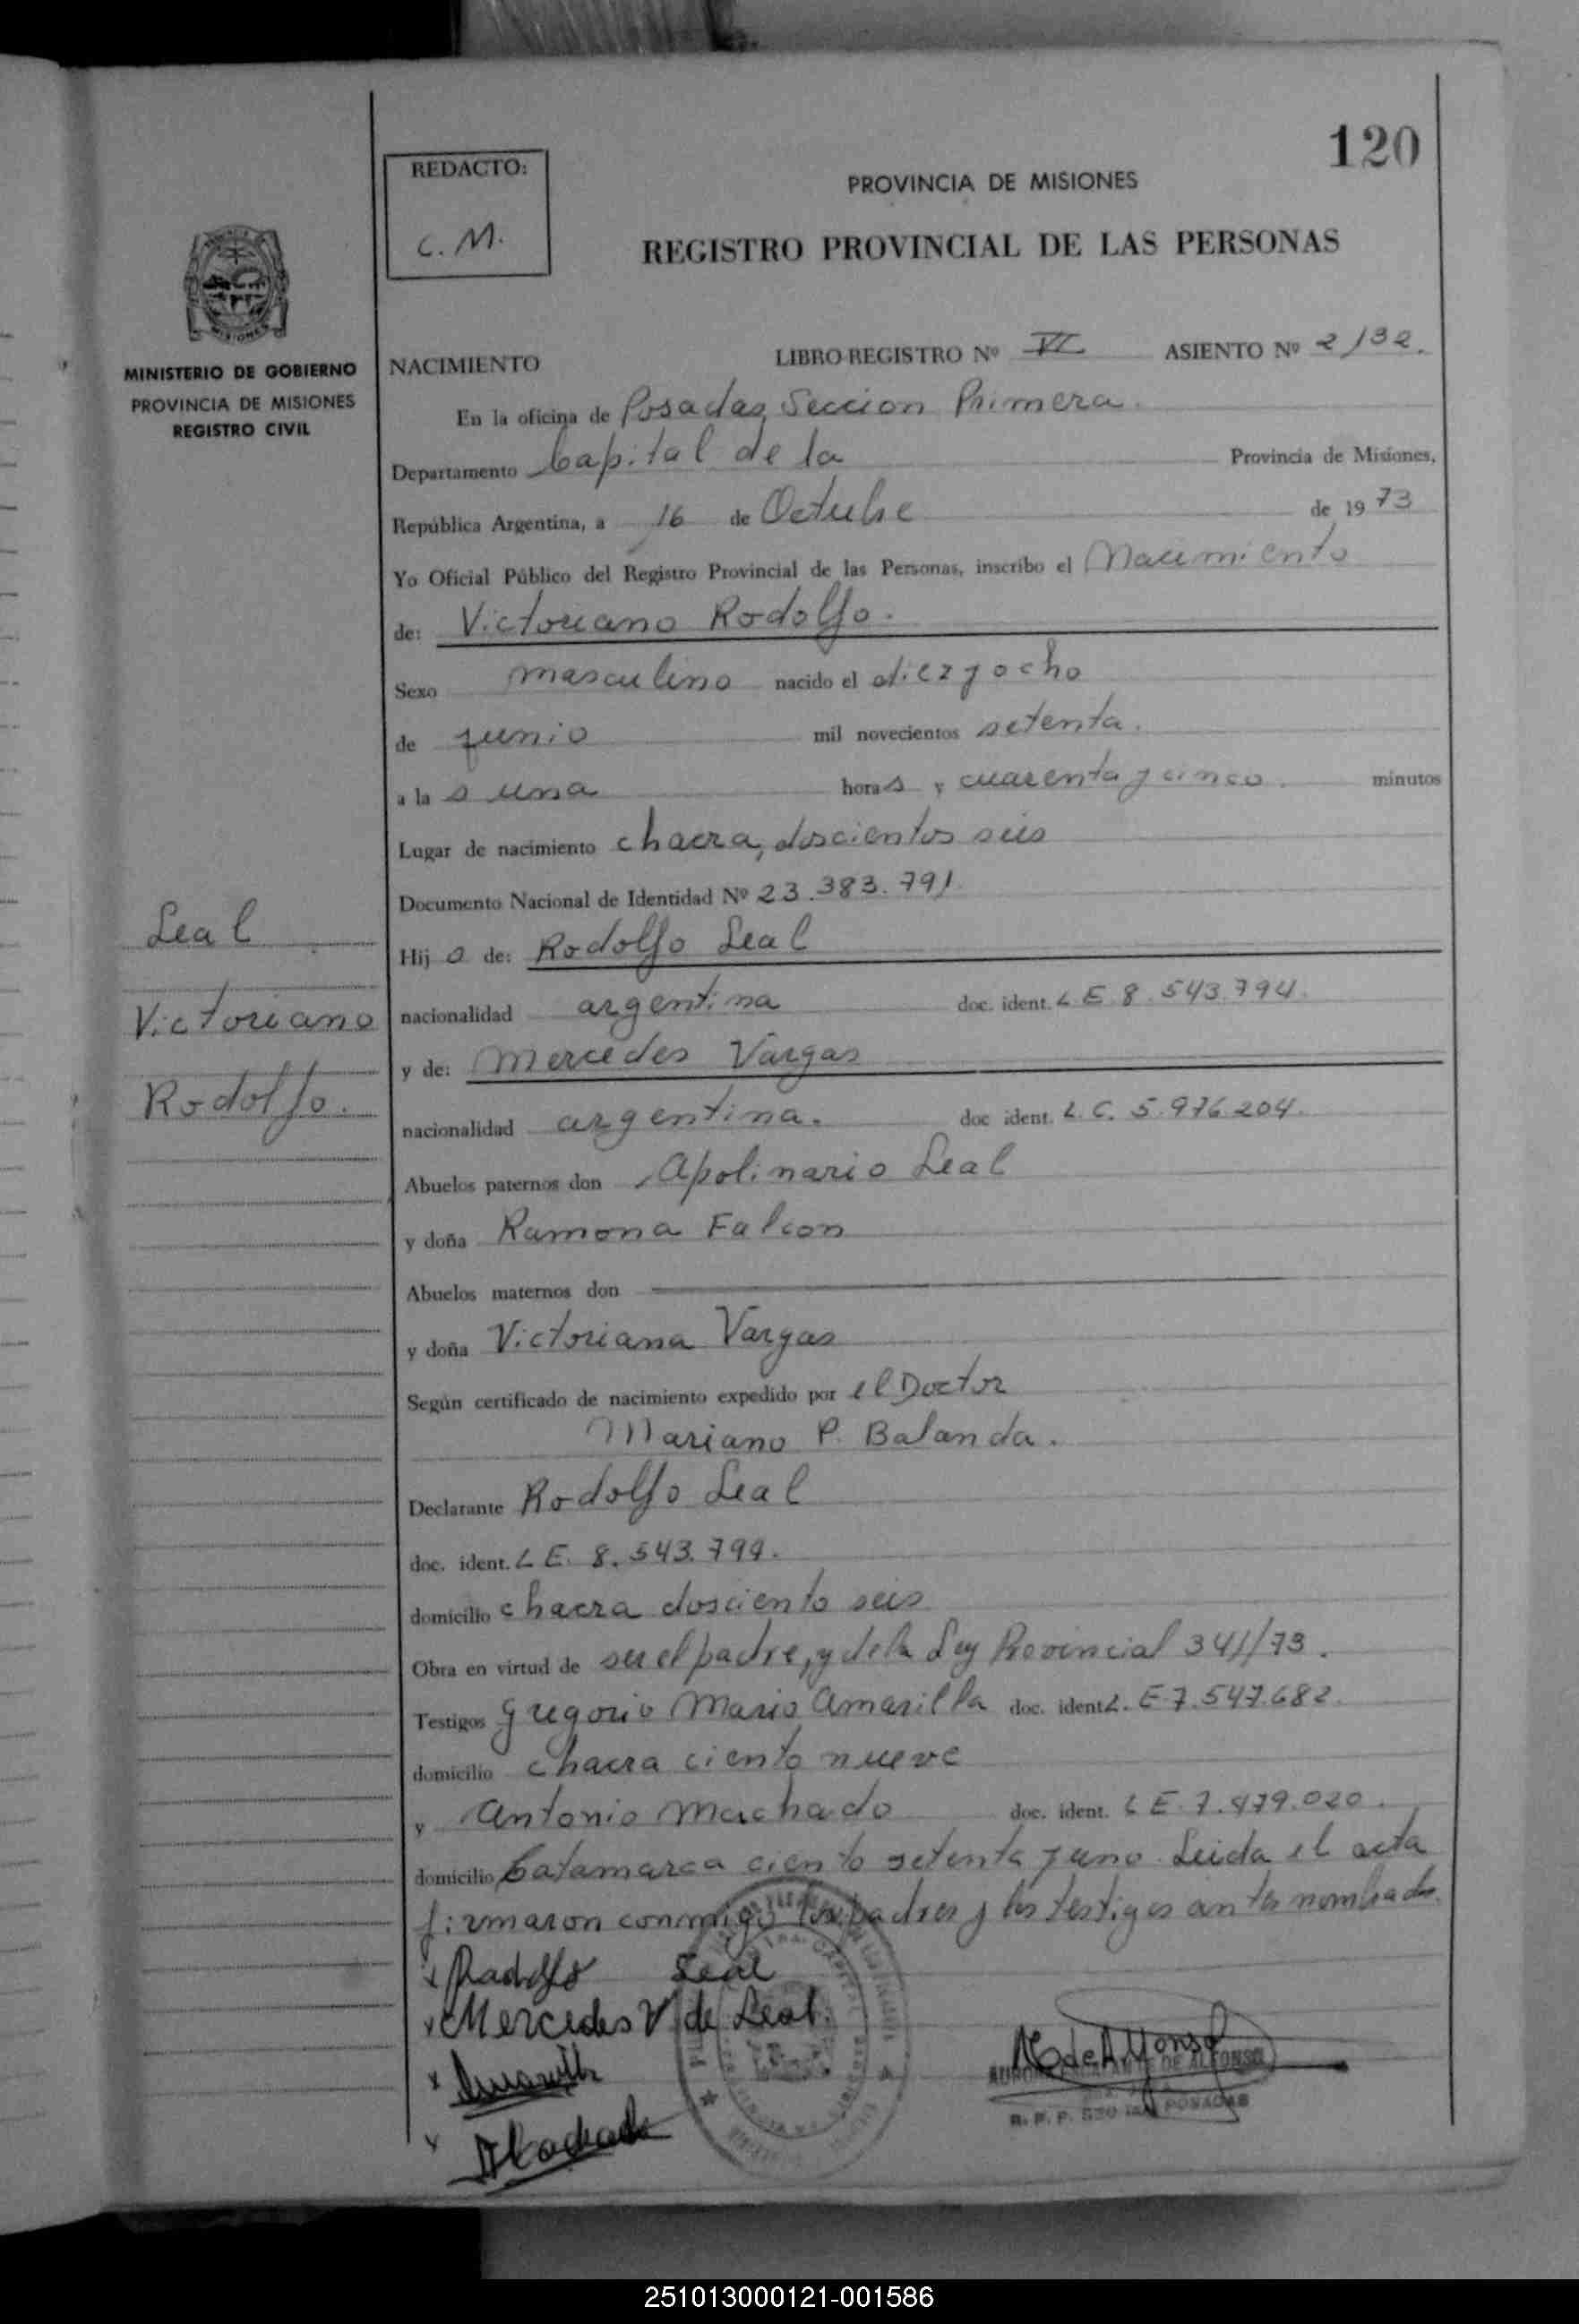 120
REDACTO:
C. M.
PROVINCIA DE MISIONES
REGISTRO PROVINCIAL DE LAS PERSONAS
MINISTERIO DE GOBIERNO
PROVINCIA DE MISIONES
REGISTRO CIVIL
NACIMIENTO LIBRO REGISTRO Nº VI ASIENTO Nº 2132.
En la oficina de Posadas, Seccion Primera.
Departamento Capital de la Provincia de Misiones,
República Argentina, a 16 de Octubre de 1973
Yo Oficial Público del Registro Provincial de las Personas, inscribo el Nacimiento
de: Victoriano Rodolfo.
Sexo masculino nacido el diez y ocho
de junio mil novecientos setenta.
a la s una horas y cuarenta y cinco. minutos
Lugar de nacimiento chacra, doscientos seis
Documento Nacional de Identidad Nº 23.383.791
Leal
Hij o de: Rodolfo Leal
Victoriano
nacionalidad argentina doc. ident. L E 8.543.794.
y de: Mercedes Vargas
Rodolfo.
nacionalidad argentina. doc ident. L. C. 5.976.204.
Abuelos paternos don Apolinario Leal
y doña Ramona Falcon
Abuelos maternos don
y doña Victoriana Vargas
Según certificado de nacimiento expedido por el Doctor
Mariano P. Balanda.
Declarante Rodolfo Leal
doc. ident. L E. 8.543.794.
domicilio chacra dosciento seis
Obra en virtud de ser el padre, y de la Ley Provincial 341/73.
Testigos Gregorio Mario Amarilla doc. ident L. E 7.547.682.
domicilio chacra ciento nueve
y Antonio Machado doc. ident. L E. 7.479.020.
domicilio Catamarca ciento setenta y uno. Leida el acta
firmaron conmigo los padres y los testigos antes nombrados.
x Rodolfo Leal
x Mercedes V de Leal.
x Amarilla
x Machado
de Alfonso
DE ALFONSO
POSADAS
251013000121-001586